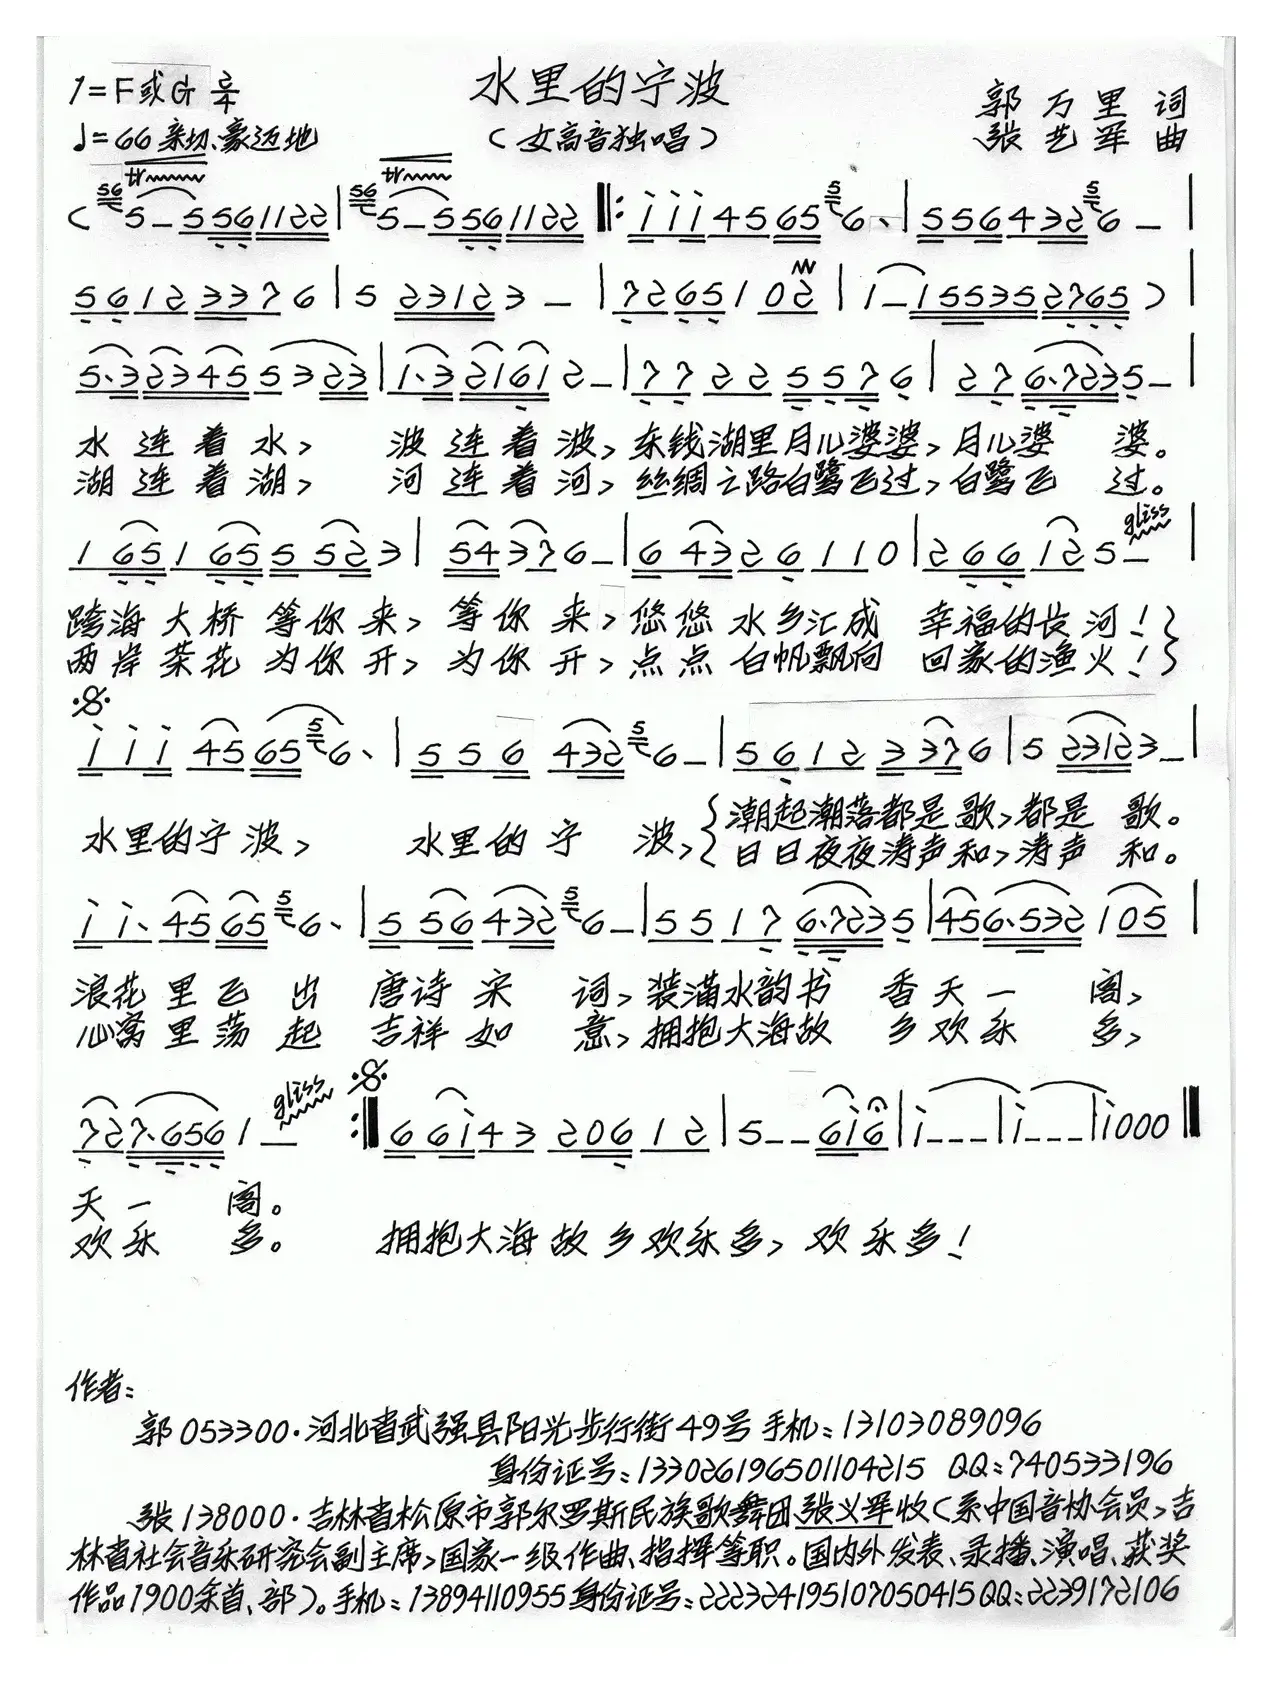 水里的宁波
1=F或G 2/4
♩=66 亲切、豪迈地
(女高音独唱)
郭万里 词
张艺军 曲
tr tr
( 56 5 – 5561122 | 56 5 – 5561122 ‖: i i i 4565 5 6 、| 556432 5 6 – |
56123376 | 5 23123 – | 7265102 | i – 155352765 ) |
5.323455323 | 1.321612 – | 77225576 | 276.7235 – |
水连着水, 波连着波, 东钱湖里月儿婆婆, 月儿婆 婆。
湖连着湖, 河连着河, 丝绸之路白鹭飞过, 白鹭飞 过。
gliss
1651655523 | 54376 – | 64326110 | 266125 – |
跨海大桥等你来, 等你来, 悠悠水乡汇成 幸福的长河!
两岸茶花为你开, 为你开, 点点白帆飘向 回家的渔火!
i i i 4565 5 6 、| 556432 5 6 – | 56123376 | 5 23123 – |
水里的宁波, 水里的宁 波, 潮起潮落都是歌, 都是 歌。
日日夜夜涛声和, 涛声 和。
i i、4565 5 6 、| 556432 5 6 – | 55176.7235 | 456.532105 |
浪花里飞出 唐诗宋 词, 装满水韵书 香天一 阁,
心窝里荡起 吉祥如 意, 拥抱大海故 乡欢乐 多,
gliss
727.6561 – :‖ 66i4320612 | 5 – – 6i6 | i – – – | i – – – | i000 ‖
天一 阁。
欢乐 多。 拥抱大海故乡欢乐多, 欢乐多!
作者:
郭 053300.河北省武强县阳光步行街49号 手机:13103089096
身份证号:133026196501104215 QQ:740533196
张 138000.吉林省松原市郭尔罗斯民族歌舞团张义军收(系中国音协会员,吉
林省社会音乐研究会副主席,国家一级作曲、指挥等职。国内外发表、录播、演唱、获奖
作品1900余首、部)。手机:13894110955身份证号:222324195107050415QQ:2239172106